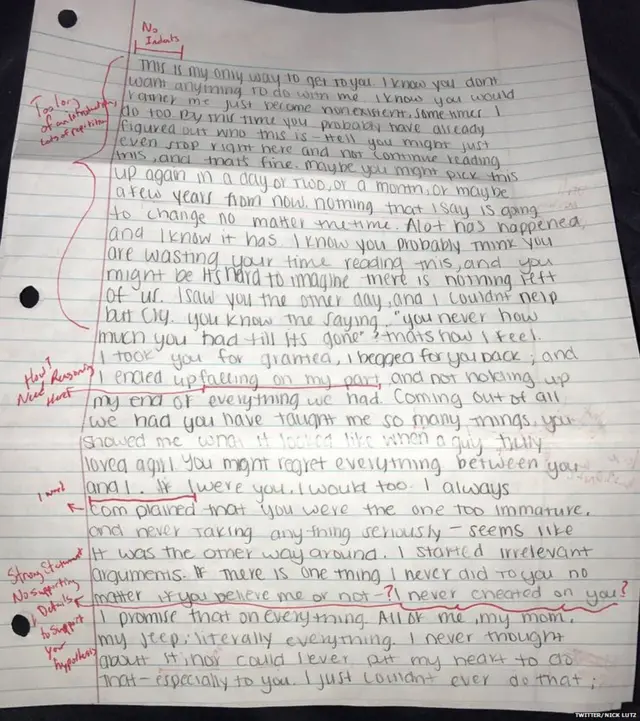 No
Indents
This is my only way to get to you I know you dont
want anything to do with me I know you would
rather me just become nonexistent, some times I
do too By this time you probably have already
figured out who this is - Hell you might just
even stop right here and not continue reading
this, and thats fine. maybe you might pick this
up again in a day or two, or a month, or maybe
a few years from now, nothing that I say is going
to change no matter the time. Alot has happened,
and I know it has I know you probably think you
are wasting your time reading this, and you
might be Its hard to imagine there is nothing left
of us. I saw you the other day, and I couldnt help
but cry. you know the saying, "you never how
much you had till its gone" thats how I feel.
I took you for granted, I begged for you back; and
I ended up falling on my part, and not holding up
my end of everything we had. Coming out of all
we had you have taught me so many things, you
showed me what it looked like when a guy truly
loved a girl You might regret everything between you
and I. If I were you, I would too. I always
complained that you were the one too immature,
and never taking anything seriously - seems like
it was the other way around. I started irrelevant
arguments. If there is one thing I never did to you no
matter if you believe me or not -? I never cheated on you?
I promise that on everything. All of me, my mom,
my jeep; literally everything. I never thought
about it; nor could I ever put my heart to do
that - especially to you. I just couldnt ever do that;
Too long
of an Introduction,
lots of repitition
How?
Need Reasoning
Here
1 word
Strong Statement
No supporting
Details
to support
your
hypothesis
TWITTER/NICK LUTZ